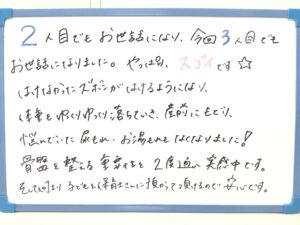 2人目でもお世話になり、今回3人目でも
お世話になりました。やっぱり、スゴイです☆
はけなかったズボンがはけるようになり、
体重もゆっくりゆっくり落ちていき、産前にもどり、
悩んでいた尿もれ・お湯もれもなくなりました!
骨盤を整える重要性を2度目の実感中です。
そして何より子どもを保育士さんに預かって頂けるので安心です。